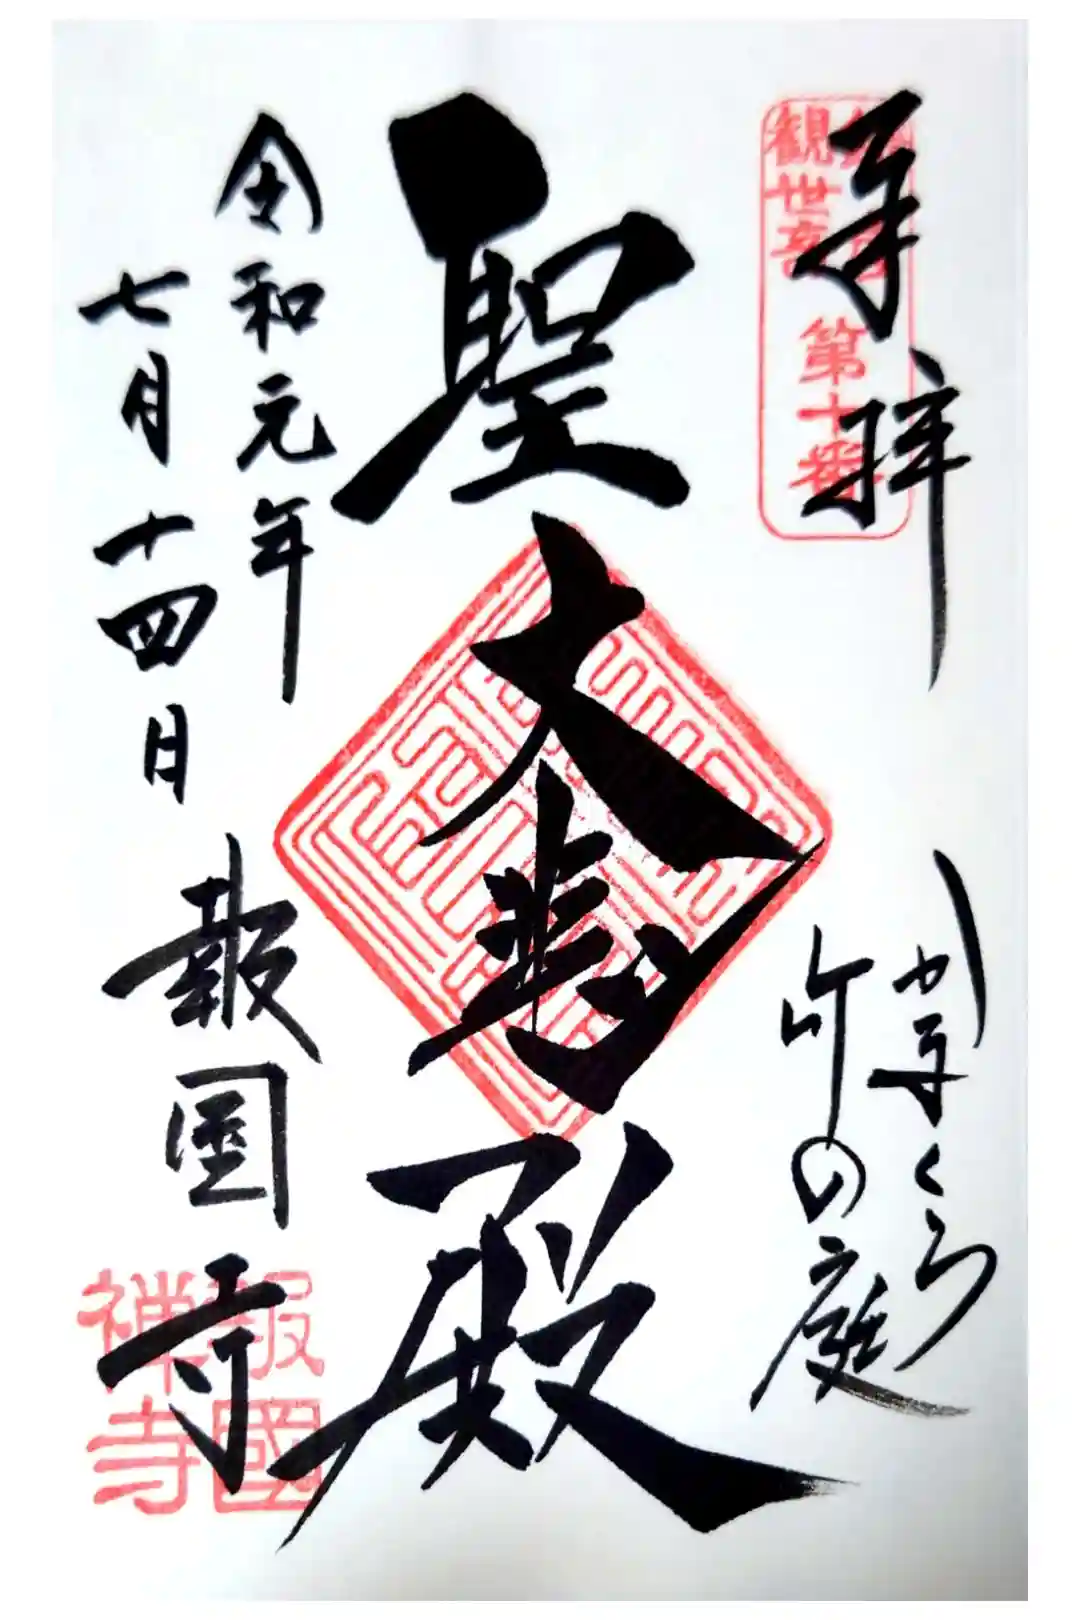 奉拝
観世音
第十番
かまくら
竹の庭
聖大悲殿
令和元年
七月十四日
報国寺
報國
禅寺